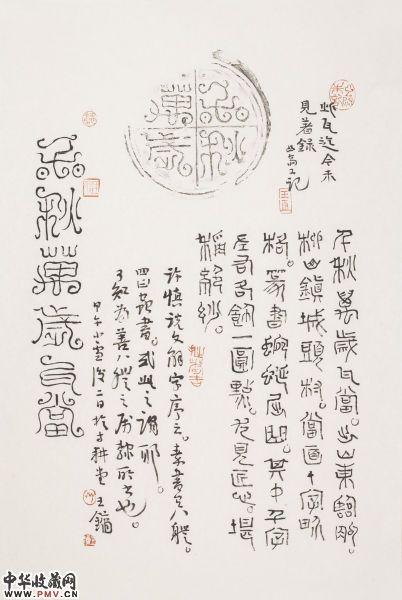 千秋
萬歲
此瓦迄今未
見著錄
又記
千秋萬歲瓦當。出山東臨朐
柳山鎮城頭村。當面十字界
格。篆書蜿蜒屈曲。其中千字
左右各飾一圓點。尤見匠心。堪
稱絕妙。
許慎說文解字序云。秦書有八體。
四曰蟲書。或此之謂耶。
知為善八體之屬隸所也。
甲午小雪後二日於古耕堂 王鏞
千秋萬歲瓦當
中华收藏网
www.PMV.CN